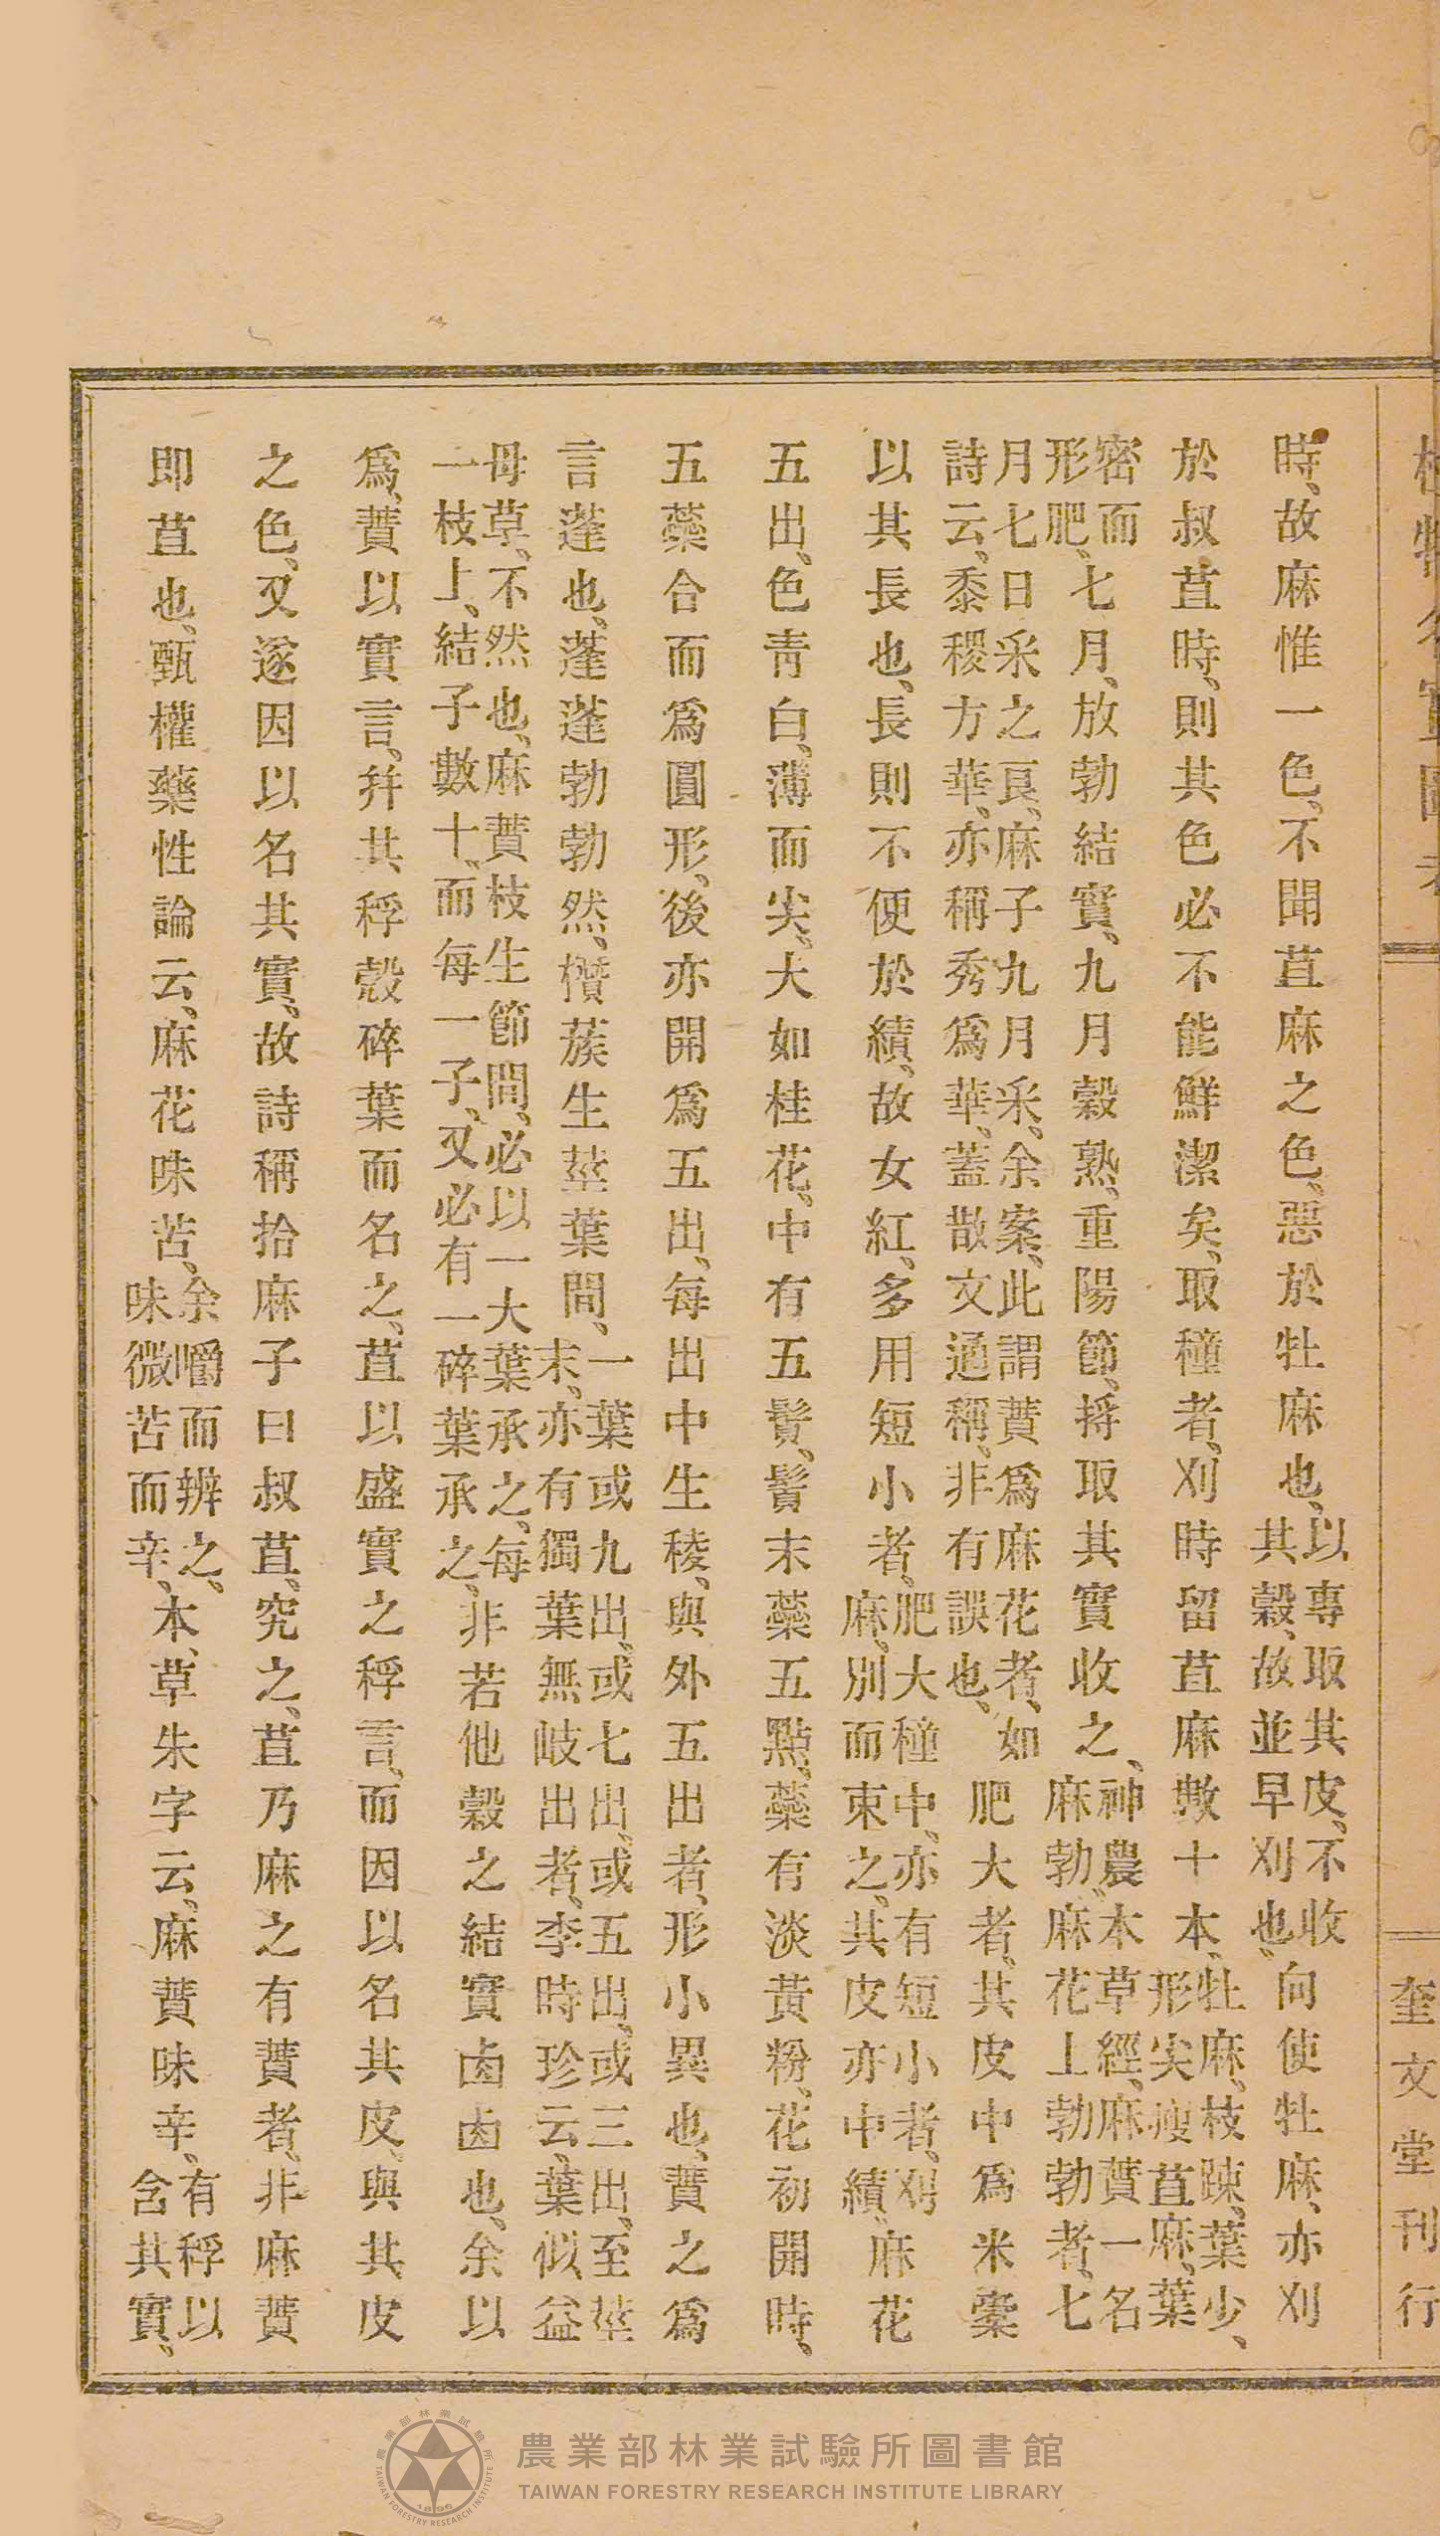 奎文堂刊行
時、故麻惟一色、不聞苴麻之色、惡於牡麻也、以專取其皮、不收其穀、故並早刈也、向使牡麻、亦刈
於叔苴時、則其色必不能鮮潔矣、取種者、刈時留苴麻數十本、牡麻、枝疎、葉少、形尖瘦苴麻、葉
密而形肥、七月、放勃結實、九月穀熟、重陽節、捋取其實收之、神農本草經、麻蕡一名麻勃、麻花上勃勃者、七
月七日采之良、麻子九月采、余案、此謂蕡爲麻花者、如詩云、黍稷方華、亦稱秀爲華、蓋散文通稱、非有誤也、肥大者、其皮中爲米橐
以其長也、長則不便於績、故女紅、多用短小者、肥大種中、亦有短小者、刈麻、別而束之、其皮亦中績、麻花
五出、色靑白、薄而尖、大如桂花、中有五鬢、鬢末蘂五點、蘂有淡黃粉、花初開時、
五蘂合而爲圓形、後亦開爲五出、每出中生稜、與外五出者、形小異也、蕡之爲
言蓬也、蓬蓬勃勃然、欑蔟生莖葉間、一葉或九出、或七出、或五出、或三出、至莖末、亦有獨葉無岐出者、李時珍云、葉似益
母草、不然也、麻蕡枝生節間、必以一大葉承之、每一枝上、結子數十、而每一子、又必有一碎葉承之、非若他穀之結實卤卤也、余以
爲、蕡以實言、幷其稃殼碎葉而名之、苴以盛實之稃言、而因以名其皮、與其皮
之色、又遂因以名其實、故詩稱拾麻子曰叔苴、究之、苴乃麻之有蕡者、非麻蕡
即苴也、甄權藥性論云、麻花味苦、余嚼而辨之、味微苦而辛、本草朱字云、麻蕡味辛、有稃以含其實、
農業部林業試驗所圖書館
TAIWAN FORESTRY RESEARCH INSTITUTE LIBRARY